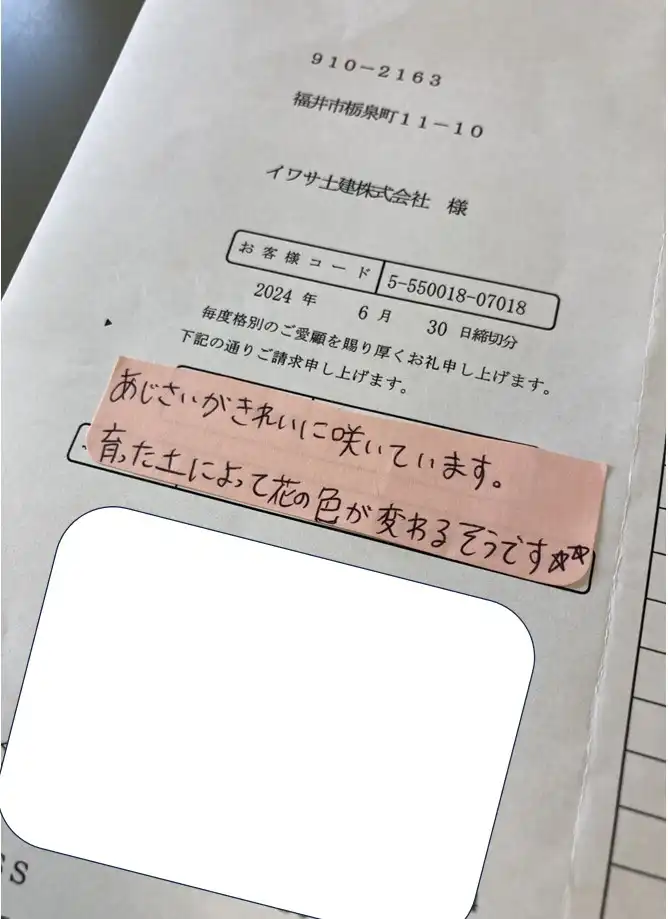 910-2163
福井市栃泉町11-10
イワサ土建株式会社 様
お客様コード 5-550018-07018
2024年 6月 30日締切分
毎度格別のご愛顧を賜り厚くお礼申し上げます。
下記の通りご請求申し上げます。
あじさいがきれいに咲いています。
育った土によって花の色が変わるそうです☆☆
SS